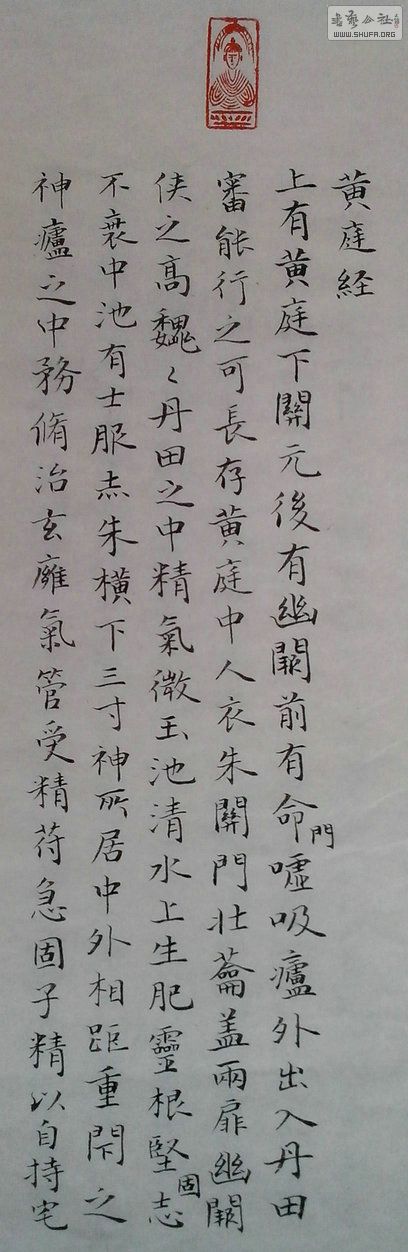 黄庭経
上有黄庭下關元後有幽闕前有命門噓吸廬外出入丹田
審能行之可長存黄庭中人衣朱關門壯蘥盖兩扉幽闕
侠之高魏〻丹田之中精氣微玉池清水上生肥靈根堅固志
不衰中池有士服赤朱橫下三寸神所居中外相距重閇之
神廬之中務脩治玄廱氣管受精苻急固子精以自持宅
書藝公社
WWW.SHUFA.ORG